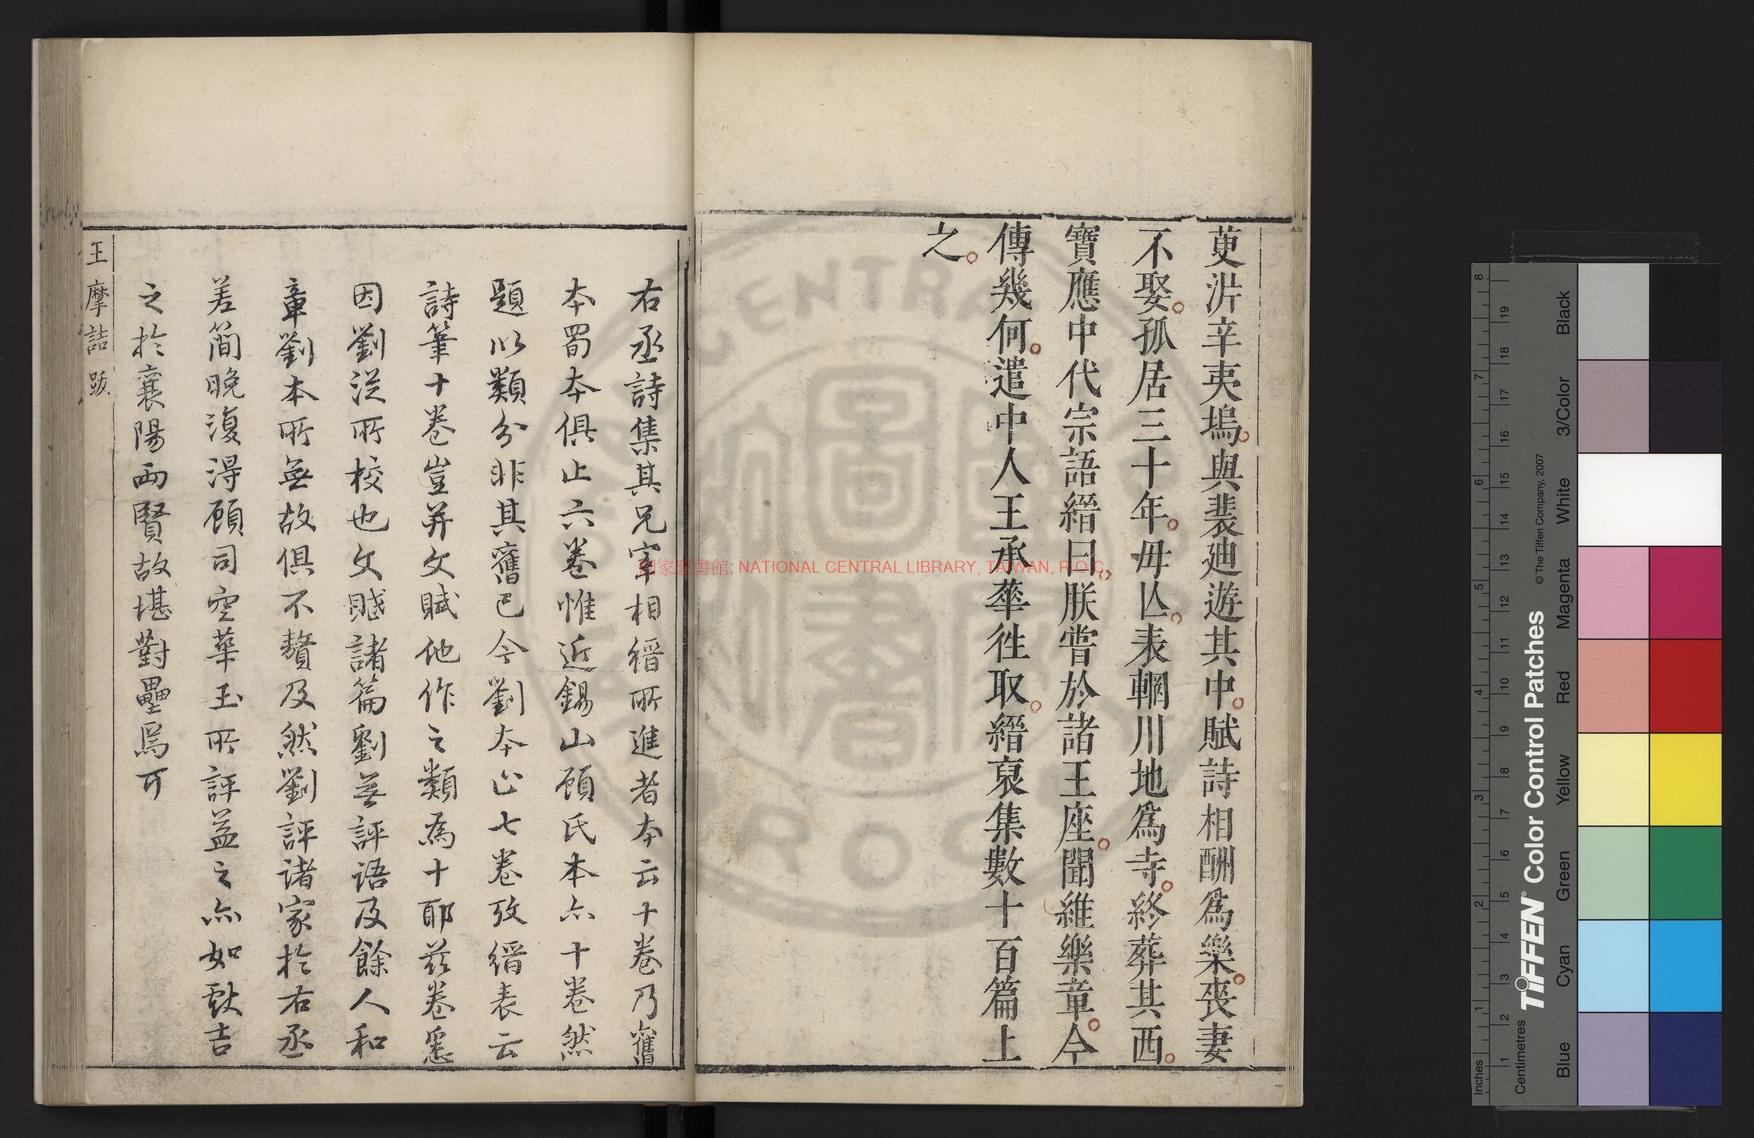 茰沜辛夷塢與裴迪遊其中賦詩相酬爲樂喪妻
不娶孤居三十年毋亾表輞川地爲寺終葬其西
寶應中代宗語縉曰朕嘗於諸王座聞維樂章今
傳幾何遣中人王承華徃取縉裒集數十百篇上
之
右丞詩集其兄宰相縉所進者本云十卷乃舊
本蜀本俱止六卷惟近錫山顧氏本亦十卷然
題以類分非其舊已今劉本止七卷攷縉表云
詩筆十卷豈并文賦他作之類爲十耶茲卷悉
因劉浞所校也文賦諸篇劉無評語及餘人和
章劉本所無故俱不贅及然劉評諸家於右丞
差簡晚復得顧司空華玉所評益之亦如獻吉
之於襄陽兩賢故堪對壘焉可
王摩詰跋
國家圖書館; NATIONAL CENTRAL LIBRARY, TAIWAN, R.O.C.
CENTRAL
R.O.C
Inches
Centimetres
TIFFEN® Color Control Patches
© The Tiffen Company, 2007
Blue Cyan Green Yellow Red Magenta White 3/Color Black